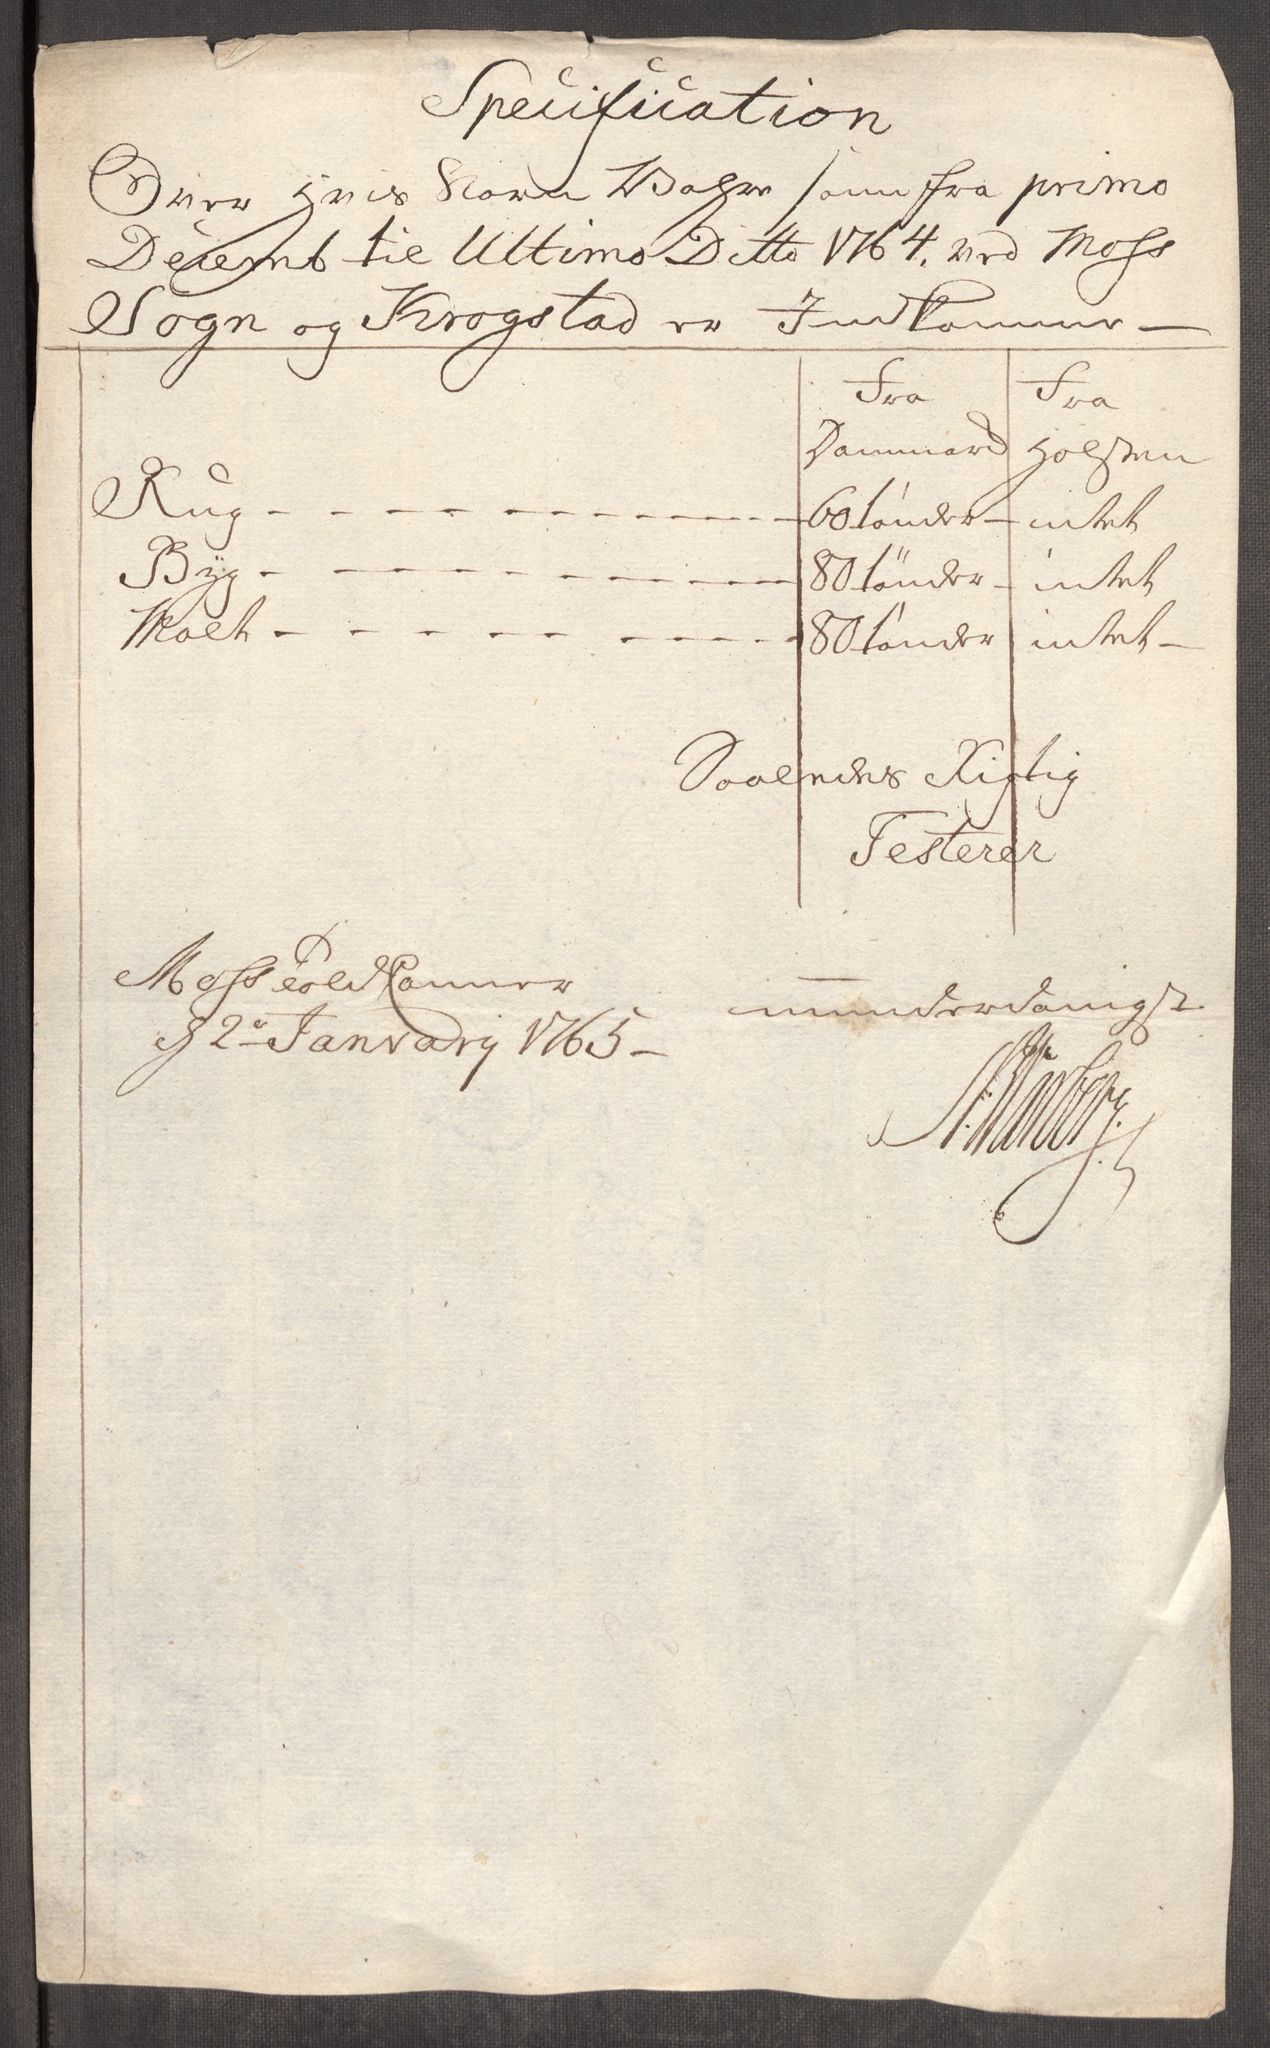 Specification
Over hvis Korn Vahre som fra primo
Decemb til Ultimo Ditto 1764. ved Moss
Sogn og Krogstad er Indkomme —
Fra Fra
Danmarck Holsten
Rug - - - - - - - - - - 60 tønder — intet
Byg - - - - - - - - - - 80 tønder — intet
Malt - - - - - - - - - - 80 tønder intet —
Saaledes Rigtig
Testerer
Moss Told Cammer
d 2n January 1765 —
underdanigst